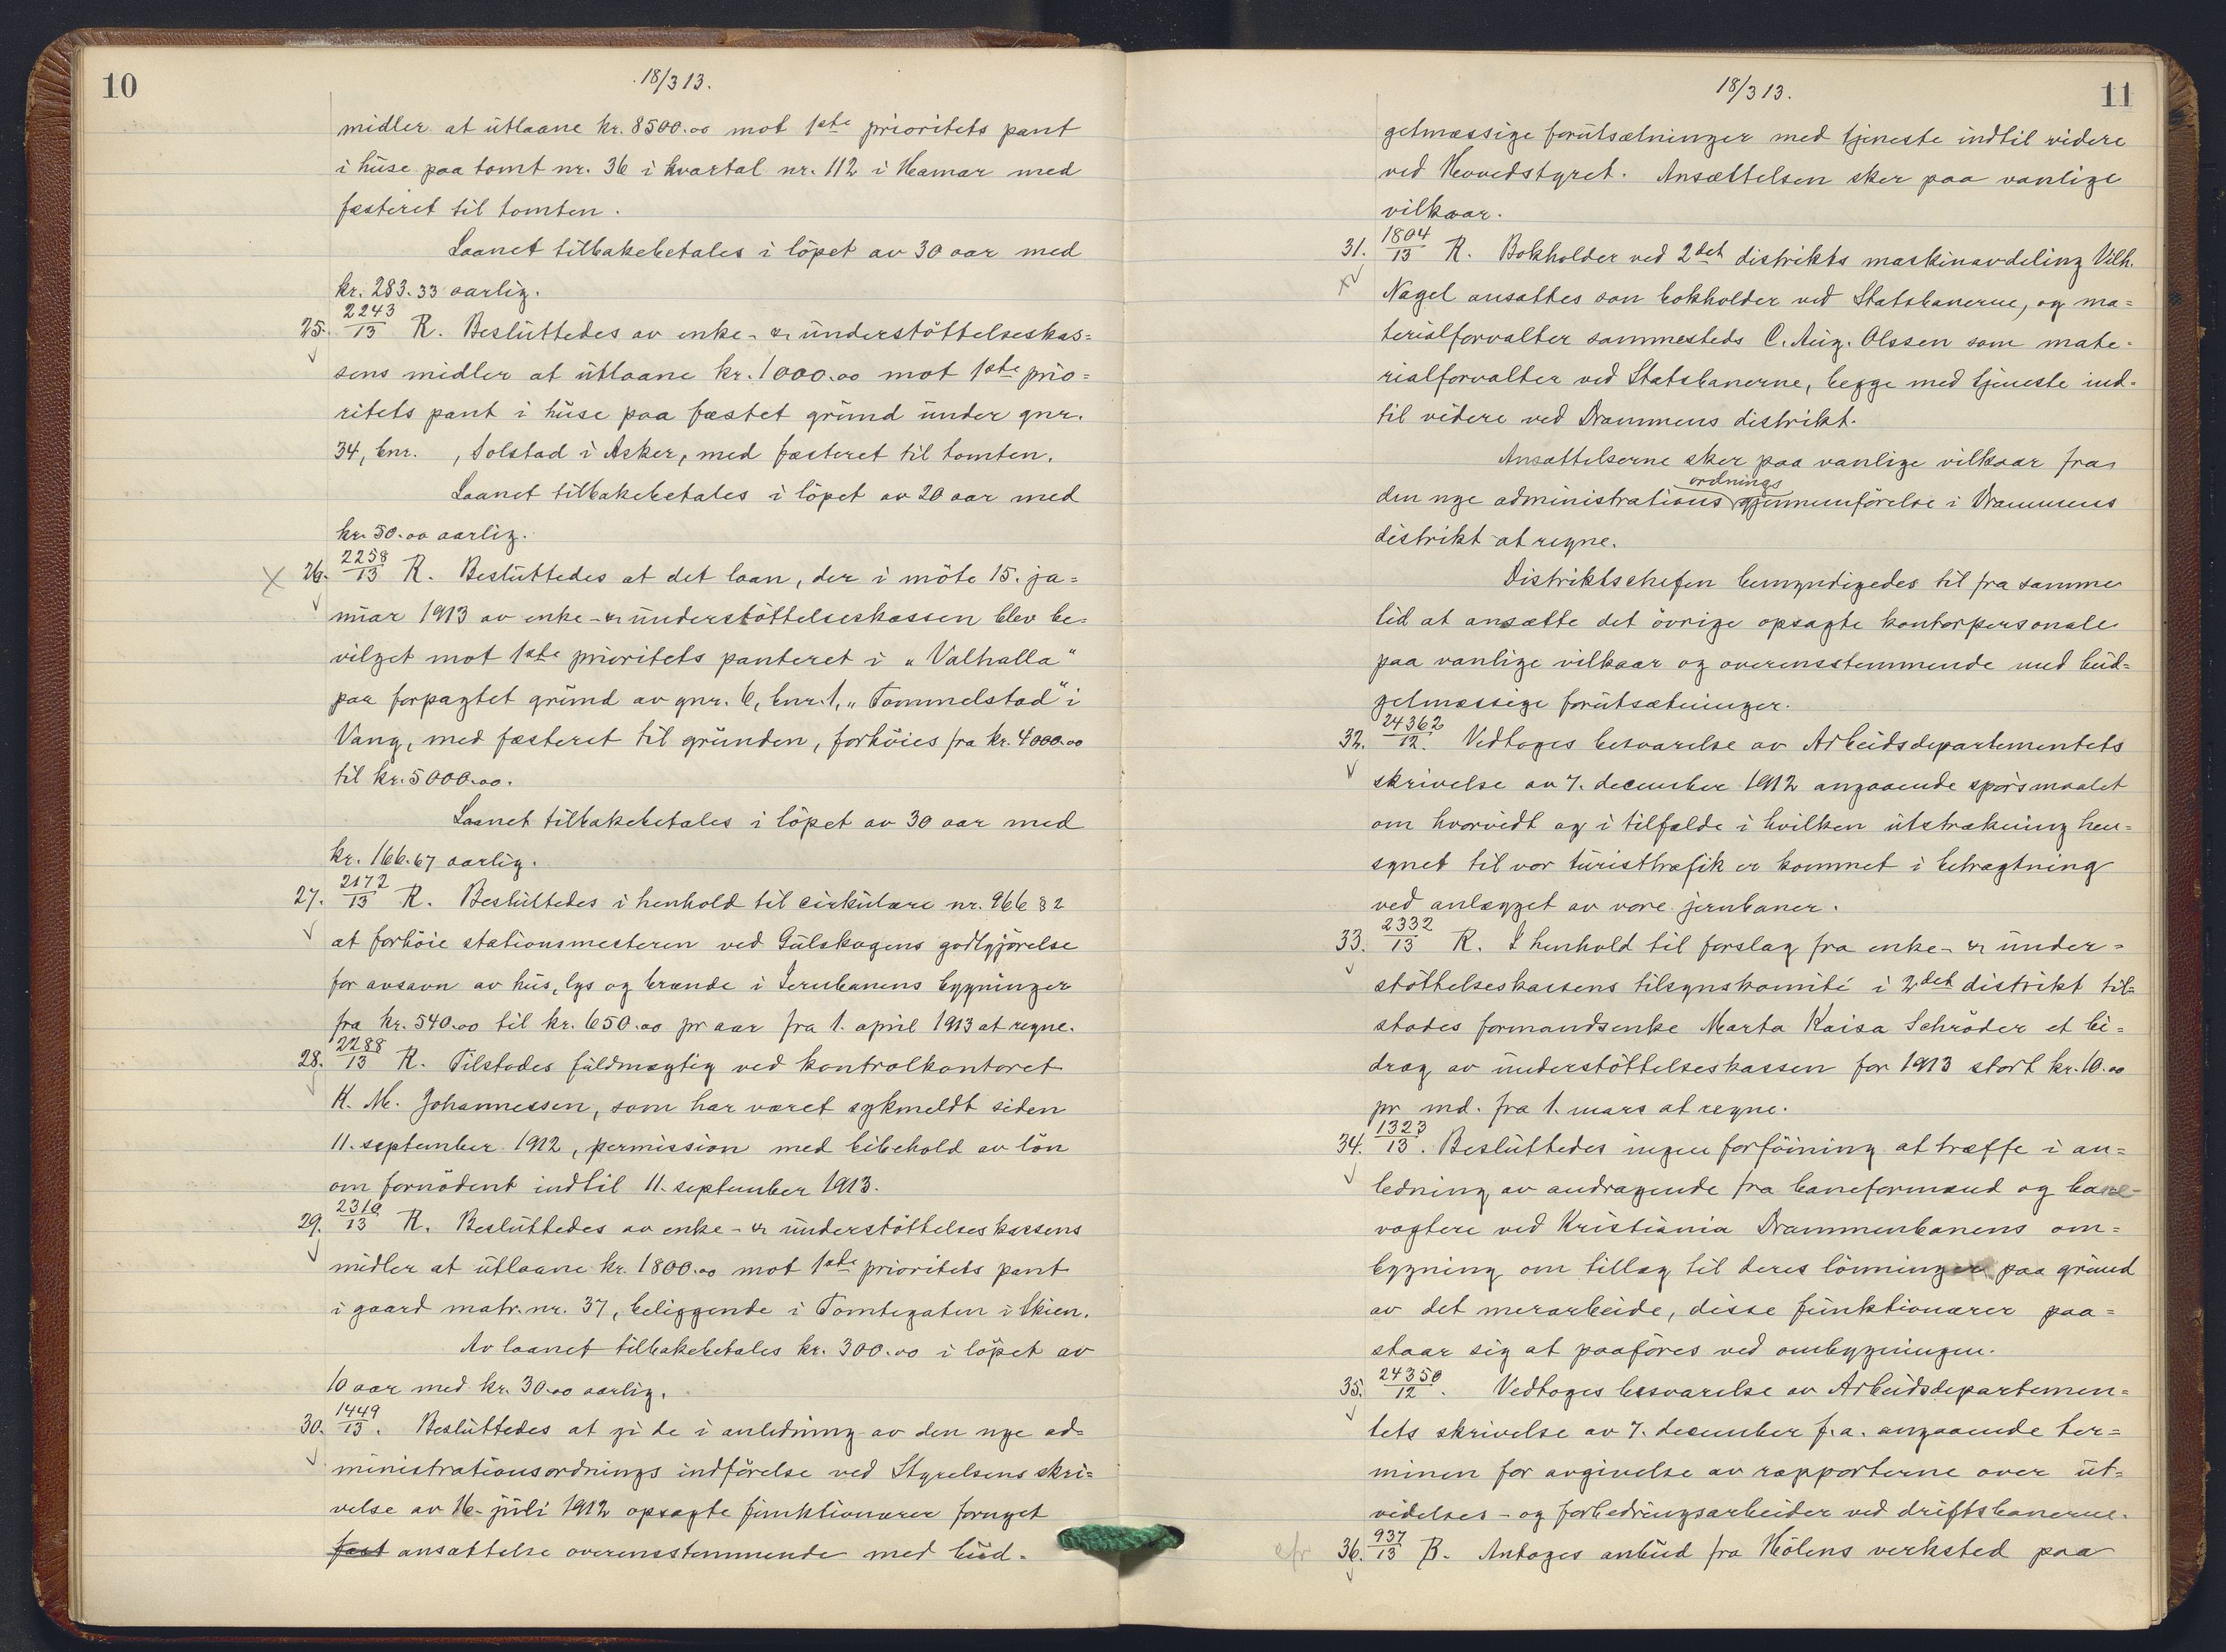 10
18/3 13.
midler at utlaane kr. 8500.00 mot 1ste prioritets pant
i huse paa tomt nr. 36 i kvartal nr. 112 i Hamar med
fæsteret til tomten.
Laanet tilbakebetales i löpet av 30 aar med
kr. 283.33 aarlig.
25. 2243/13 R. Besluttedes av enke- & understöttelseskas=
sens midler at utlaane kr. 1000.00 mot 1ste prio=
ritets pant i huse paa fæstet grund under gnr.
34, bnr. , Solstad i Asker, med fæsteret til tomten.
Laanet tilbakebetales i löpet av 20 aar med
kr. 50.00 aarlig.
26. 2258/13 R. Besluttedes at det laan, der i möte 15. ja=
nuar 1913 av enke- & understöttelseskassen blev be=
vilget mot 1ste prioritets panteret i „Valhalla“
paa forpagtet grund av gnr. 6, bnr. 1, „Tommelstad“ i
Vang, med fæsteret til grunden, forhöies fra kr. 4000.00
til kr. 5000.00.
Laanet tilbakebetales i löpet av 30 aar med
kr. 166.67 aarlig.
27. 2172/13 R. Besluttedes i henhold til cirkulære nr. 966 § 2
at forhöie stationsmesteren ved Gulskogens godtgjörelse
for avsavn av hus, lys og brænde i Jernbanens bygninger
fra kr. 540.00 til kr. 650.00 pr aar fra 1. april 1913 at regne.
28. 2288/13 R. Tilstodes fuldmægtig ved kontrolkontoret
K. M. Johannessen, som har været sykmeldt siden
11. september 1912, permission med bibehold av lön
om fornödent indtil 11. september 1913.
29. 2310/13 R. Besluttedes av enke- & understöttelseskassens
midler at utlaane kr. 1800.00 mot 1ste prioritets pant
i gaard matr. nr. 37, beliggende i Tomtegaten i Skien.
Av laanet tilbakebetales kr. 300.00 i löpet av
10 aar med kr. 30.00 aarlig.
30. 1449/13. Besluttedes at gi de i anledning av den nye ad=
ministrationsordnings indförelse ved Styrelsens skri=
velse av 16. juli 1912 opsagte funktionærer fornyet
fast ansættelse overensstemmende med bud=
18/3 13.
11
getmæssige forutsætninger med tjeneste indtil videre
ved Hovedstyret. Ansættelsen sker paa vanlige
vilkaar.
31. 1804/13 R. Bokholder ved 2det distrikts maskinavdeling Vilh.
Nagel ansattes som bokholder ved Statsbanerne, og ma=
terialforvalter sammesteds C. Aug. Olssen som mate=
rialforvalter ved Statsbanerne, begge med tjeneste ind=
til videre ved Drammens distrikt.
Ansættelserne sker paa vanlige vilkaar fra
ordnings
den nye administrations gjennemförelse i Drammens
distrikt at regne.
Distriktschefen bemyndigedes til fra samme
tid at ansætte det övrige opsagte kontorpersonale
paa vanlige vilkaar og overensstemmende med bud=
getmæssige forutsætninger.
32. 24362/12. Vedtoges besvarelse av Arbeidsdepartementets
skrivelse av 7. december 1912 angaaende spörsmaalet
om hvorvidt og i tilfælde i hvilken utstrækning hen=
synet til vor turisttrafik er kommet i betragtning
ved anlægget av vore jernbaner.
33. 2332/13 R. I henhold til forslag fra enke- & under=
stöttelseskassens tilsynskomité i 2det distrikt til=
stodes formandsenke Marta Kaisa Schröder et bi=
drag av understöttelseskassen for 1913 stort kr. 10.00
pr md. fra 1. mars at regne.
34. 1323/13. Besluttedes ingen forföining at træffe i an=
ledning av andragende fra baneformænd og bane-
vogtere ved Kristiania Drammenbanens om=
bygning om tillæg til deres lönninger paa grund
av det merarbeide, disse funktionærer paa=
staar sig at paaföres ved ombygningen.
35. 24350/12. Vedtoges besvarelse av Arbeidsdepartemen=
tets skrivelse av 7. december f.a. angaaende ter=
minen for avgivelse av rapporterne over ut=
videlses- og forbedringsarbeider ved driftsbanerne.
cfr 36. 937/13 B. Antoges anbud fra Hölens verksted paa